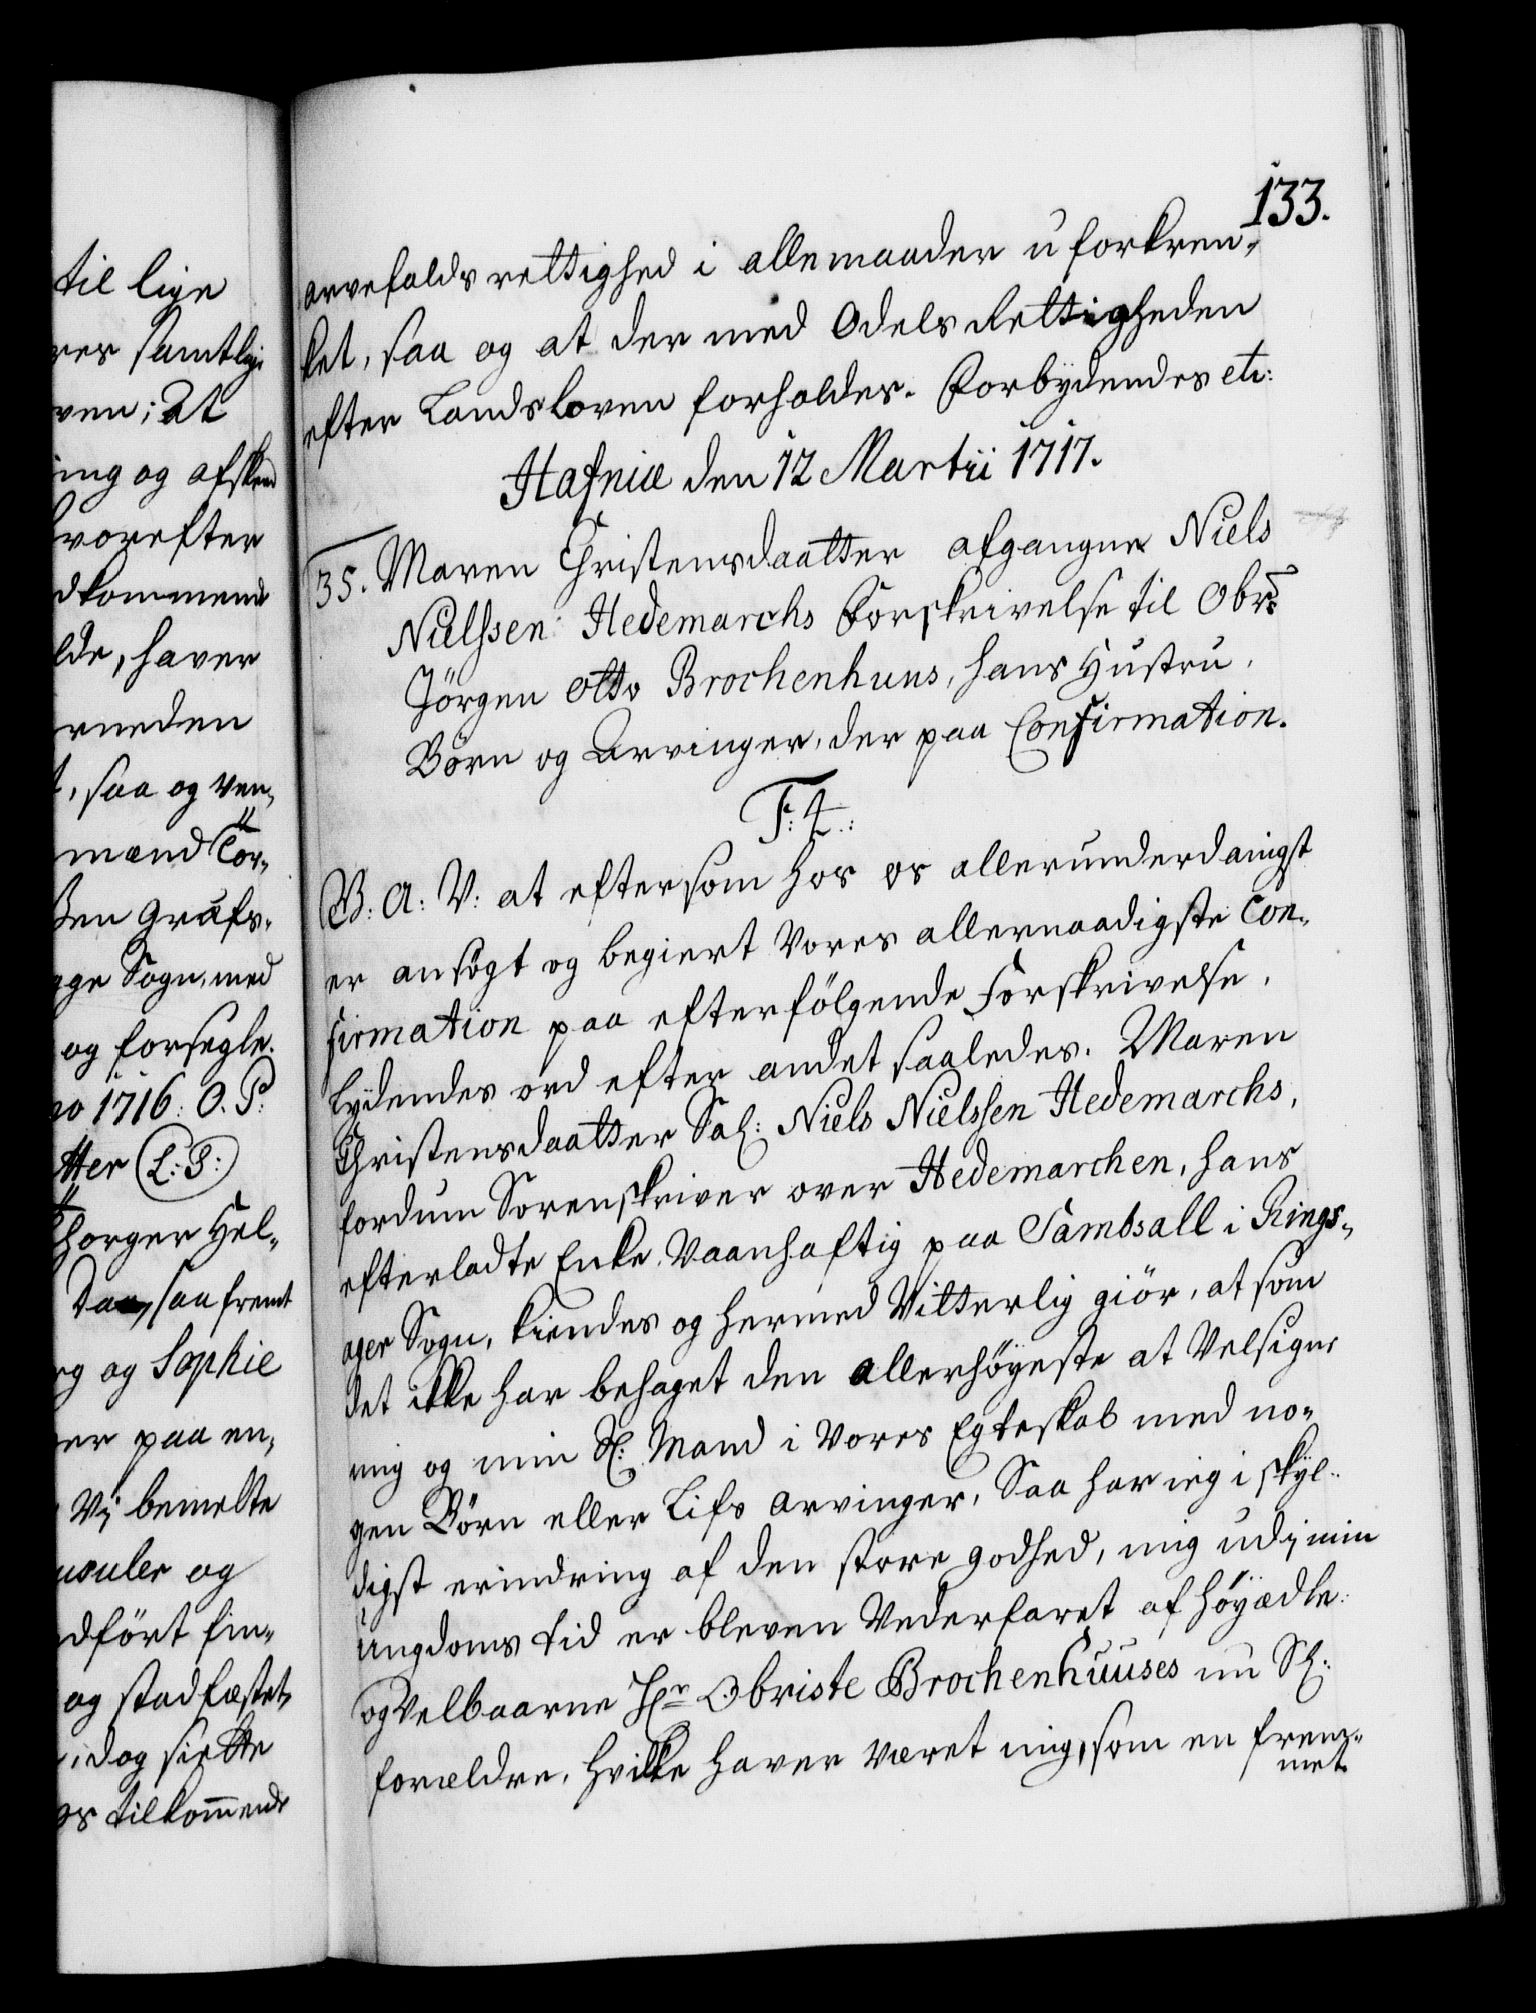 til lige
res samtlige
ven; At
ing og afskeed
hvorefter
dkommende
lde, haver
rneden
t, saa og ven-
mænd Tor-
sen Grafs-
gge Sogn, med
og forsegle.
no 1716. O. P:
tter (L: S:)
Thorger Hel-
Dag, saa fremt
rg og Sophie
er paa en-
Vi bemelte
usuler og
dført fin-
og stadfæstet,
i dog siette
es tilkom̃ende
133.
arvefalds rettighed i alle maader uforkren-
ket, saa og at der med Odels Rettigheden
efter Landsloven forholdes. Forbydendes etc:
Hafniæ den 12 Martii 1717.
35. Maren Christensdaatter afgangne Niels
Nielssen Hedemarchs Forskrivelse til Obr:
Jörgen Otto Brochenhuus, hans Hustru,
Börn og Arvinger, der paa Confirmation.
F: 4.:
V: A: V: at eftersom hos os allerunderdanigst
er ansögt og begiert Vores allernaadigste Con-
firmation paa efterfölgende Forskrivelse,
lydendes ord efter andet saaledes. Maren
Christensdaatter Sal: Niels Nielssen Hedemarchs,
fordum Sorenskriver over Hedemarchen, hans
efterladte Enke, Vaanhaftig paa Sambsall i Rings-
ager Sogn, kiendes og hermed Vitterlig giör, at som
det ikke har behaget den allerhöyeste at Velsigne
mig og min Sl: Mand i Vores Egteskab med no-
gen Börn eller Lifs arvinger, Saa har ieg i skyl-
digst erindring af den store godhed, mig udi min
ungdoms tid er bleven Vederfaret af höyædle
og Velbaarne Hr. Obriste Brochenhuuses nu Sl:
forældre, hvilke haver været mig, som en frem-
met